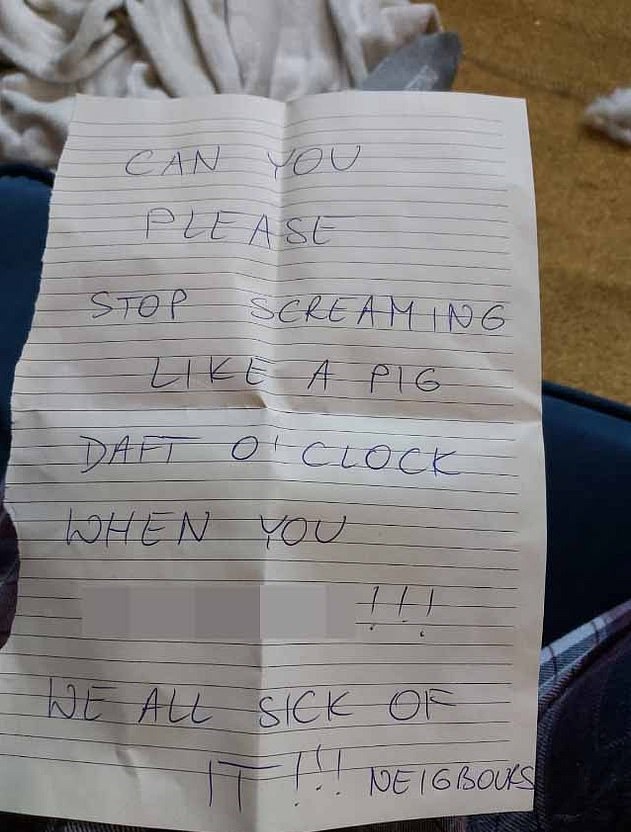 CAN YOU
PLEASE
STOP SCREAMING
LIKE A PIG
DAFT O'CLOCK
WHEN YOU
!!!
WE ALL SICK OF
IT!!! NEIGBOURS